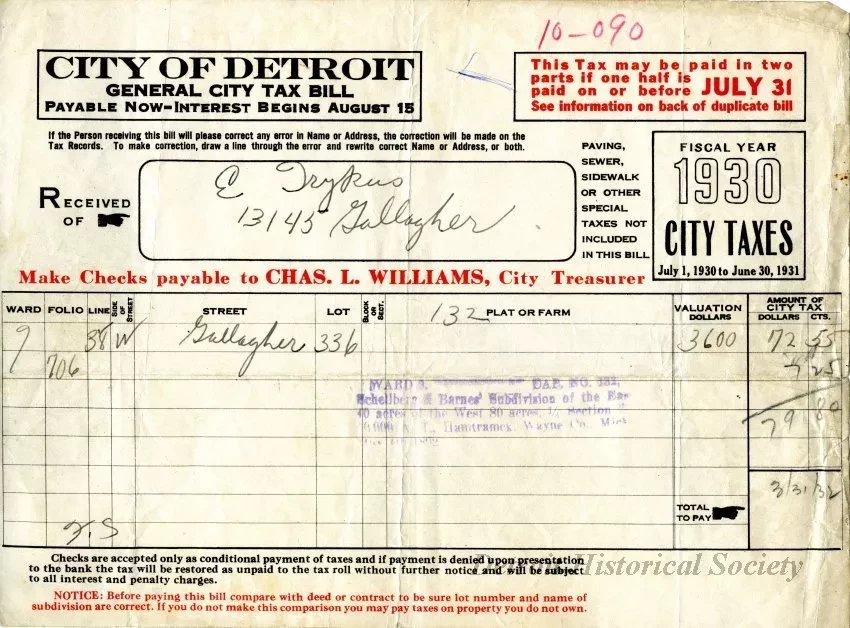 10-090
CITY OF DETROIT
GENERAL CITY TAX BILL
PAYABLE NOW—INTEREST BEGINS AUGUST 15
This Tax may be paid in two
parts if one half is
paid on or before JULY 31
See information on back of duplicate bill
If the Person receiving this bill will please correct any error in Name or Address, the correction will be made on the
Tax Records. To make correction, draw a line through the error and rewrite correct Name or Address, or both.
RECEIVED
OF
E Trykus
13145 Gallagher
PAVING,
SEWER,
SIDEWALK
OR OTHER
SPECIAL
TAXES NOT
INCLUDED
IN THIS BILL
FISCAL YEAR
1930
CITY TAXES
July 1, 1930 to June 30, 1931
Make Checks payable to CHAS. L. WILLIAMS, City Treasurer
WARD FOLIO LINE SIDE OF STREET STREET LOT BLOCK OR SECT. 132 PLAT OR FARM VALUATION DOLLARS AMOUNT OF CITY TAX DOLLARS CTS.
9 38 W Gallagher 336 3600 72 55
706 7 25
WARD 9, CAP. NO. 132,
Schellberg & Barnes' Subdivision of the Eas
40 acres of the West 80 acres, ¼ Section
Hamtramck, Wayne Co., Mich
79 80
3/31/32
TOTAL
TO PAY
Checks are accepted only as conditional payment of taxes and if payment is denied upon presentation
to the bank the tax will be restored as unpaid to the tax roll without further notice and will be subject
to all interest and penalty charges.
Historical Society
NOTICE: Before paying this bill compare with deed or contract to be sure lot number and name of
subdivision are correct. If you do not make this comparison you may pay taxes on property you do not own.